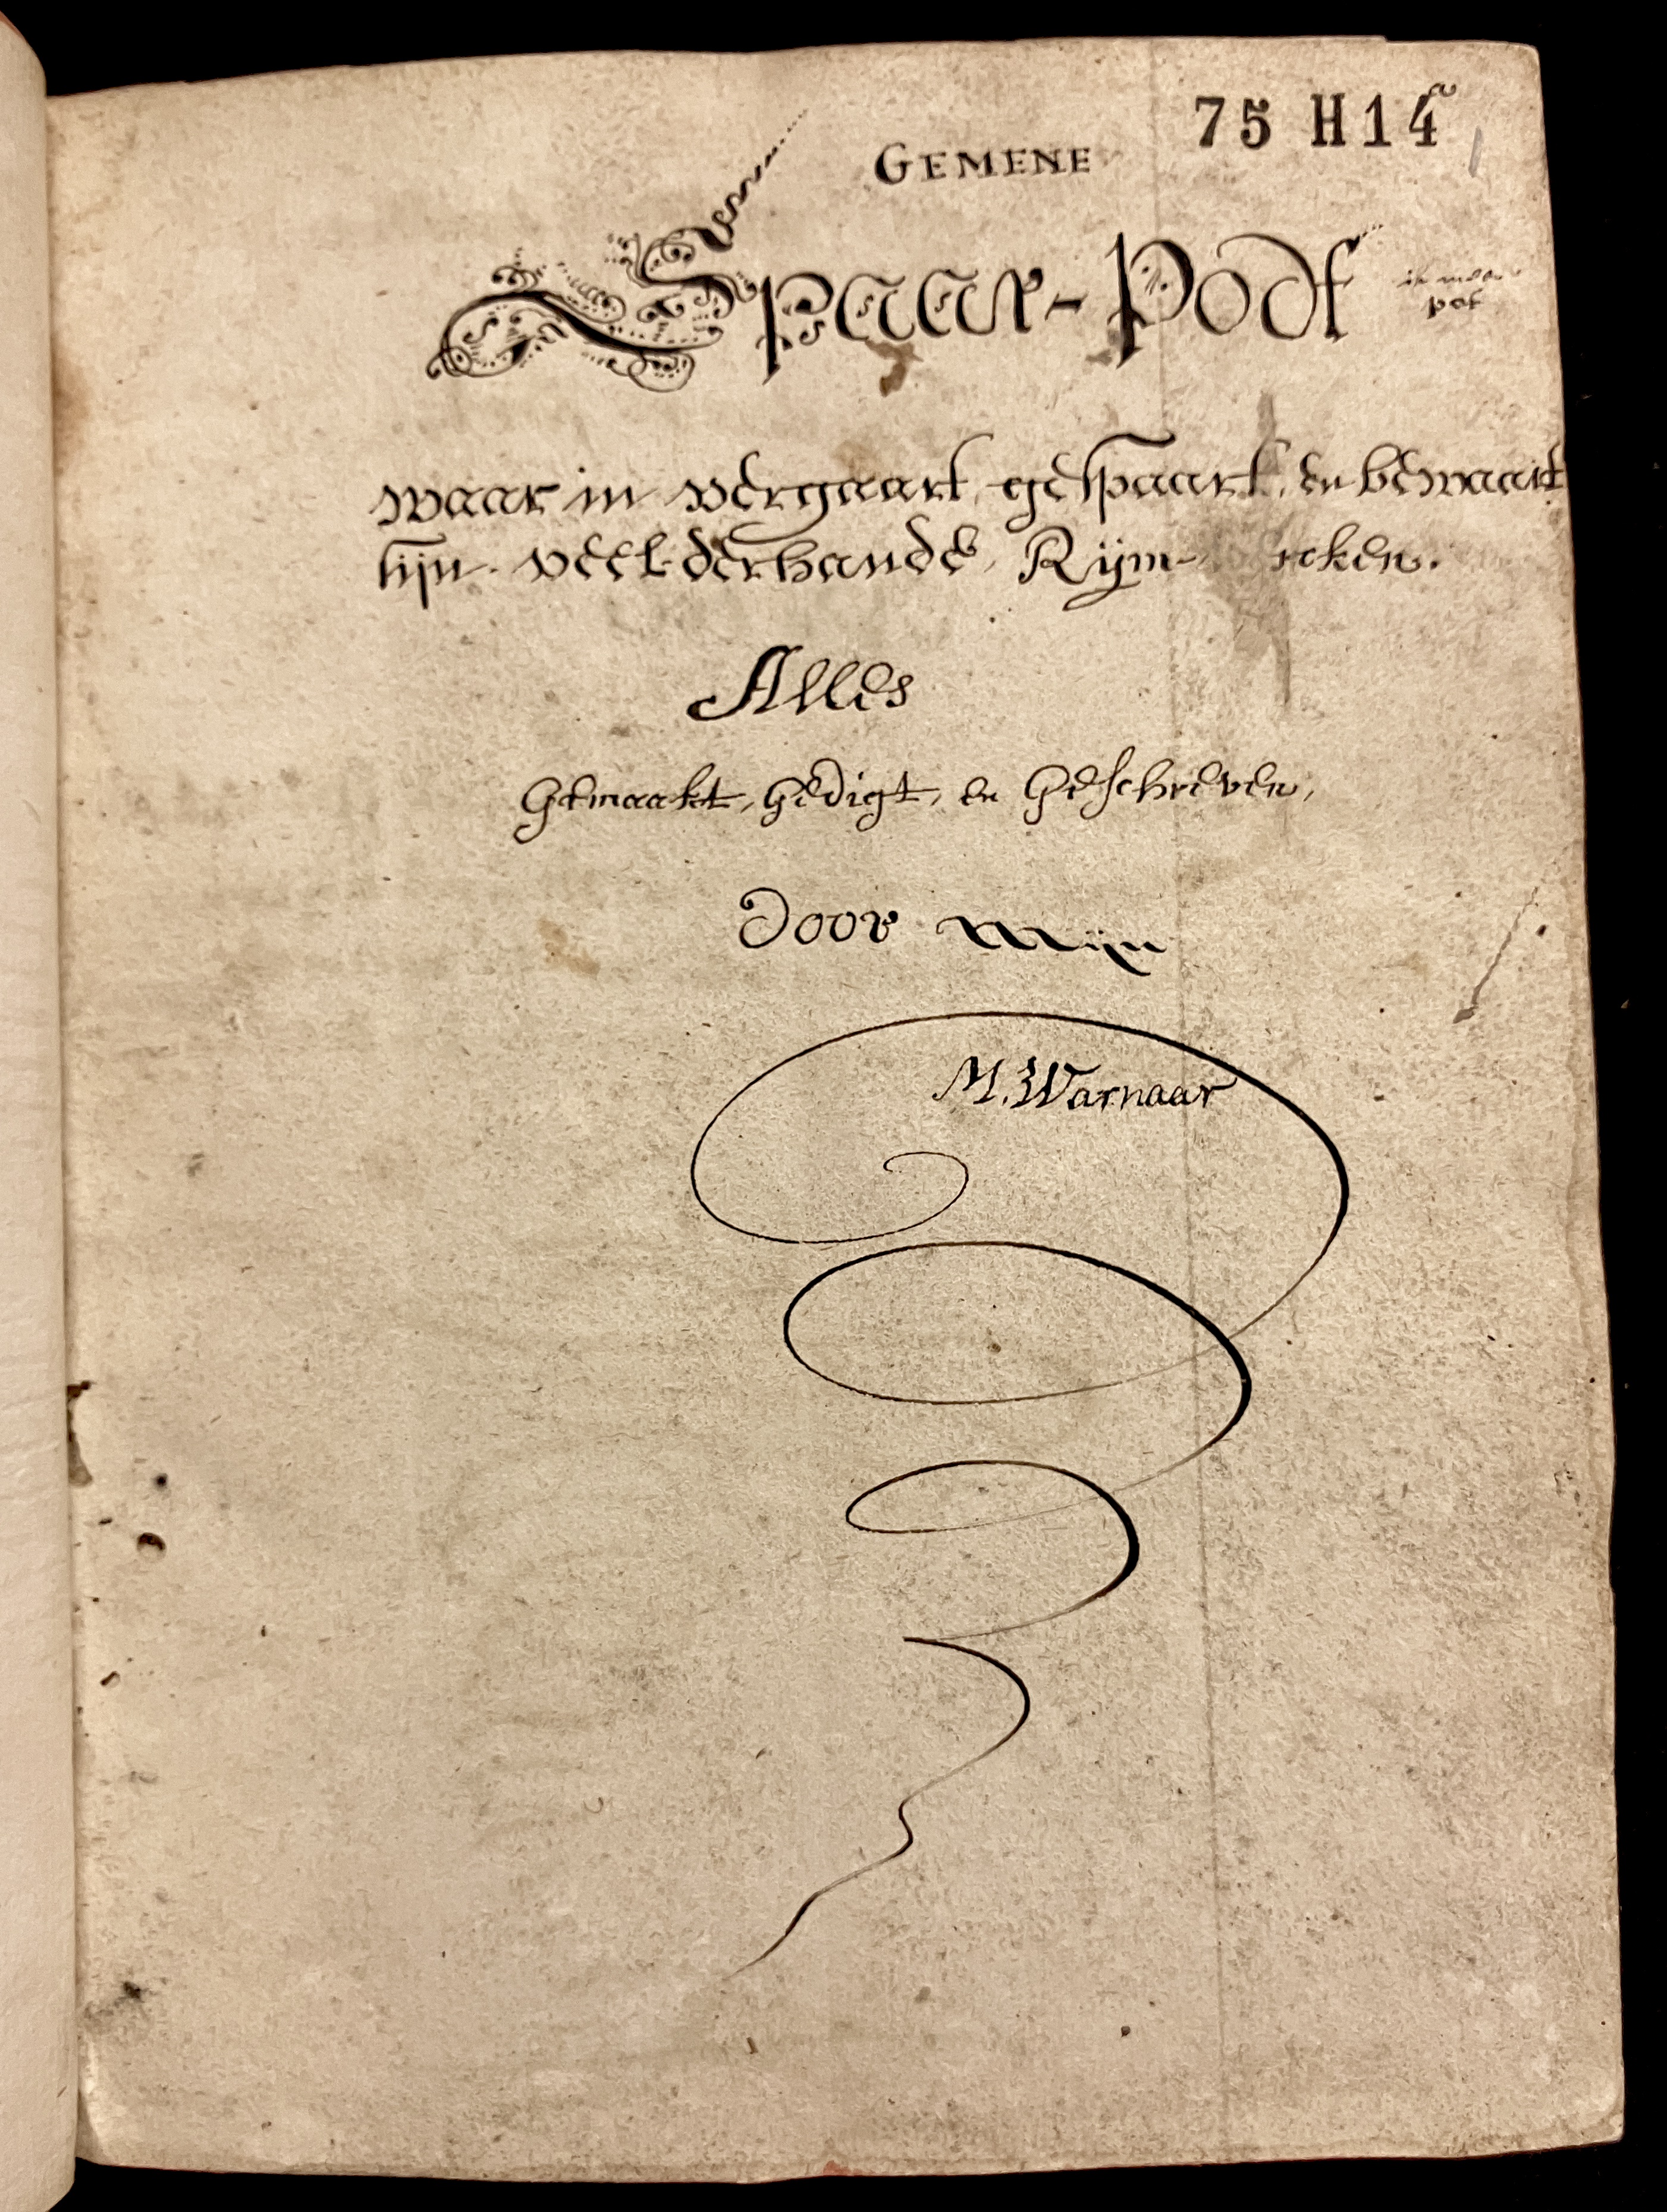 75 H14
GEMENE
Spaar-Podt
pot
waar in vergaart, gespaart, en bewaart
sijn veel-derhande Rijm-
Alles
Gemaakt, Gedigt, en Geschreven,
Door Mijn
M. Warnaar